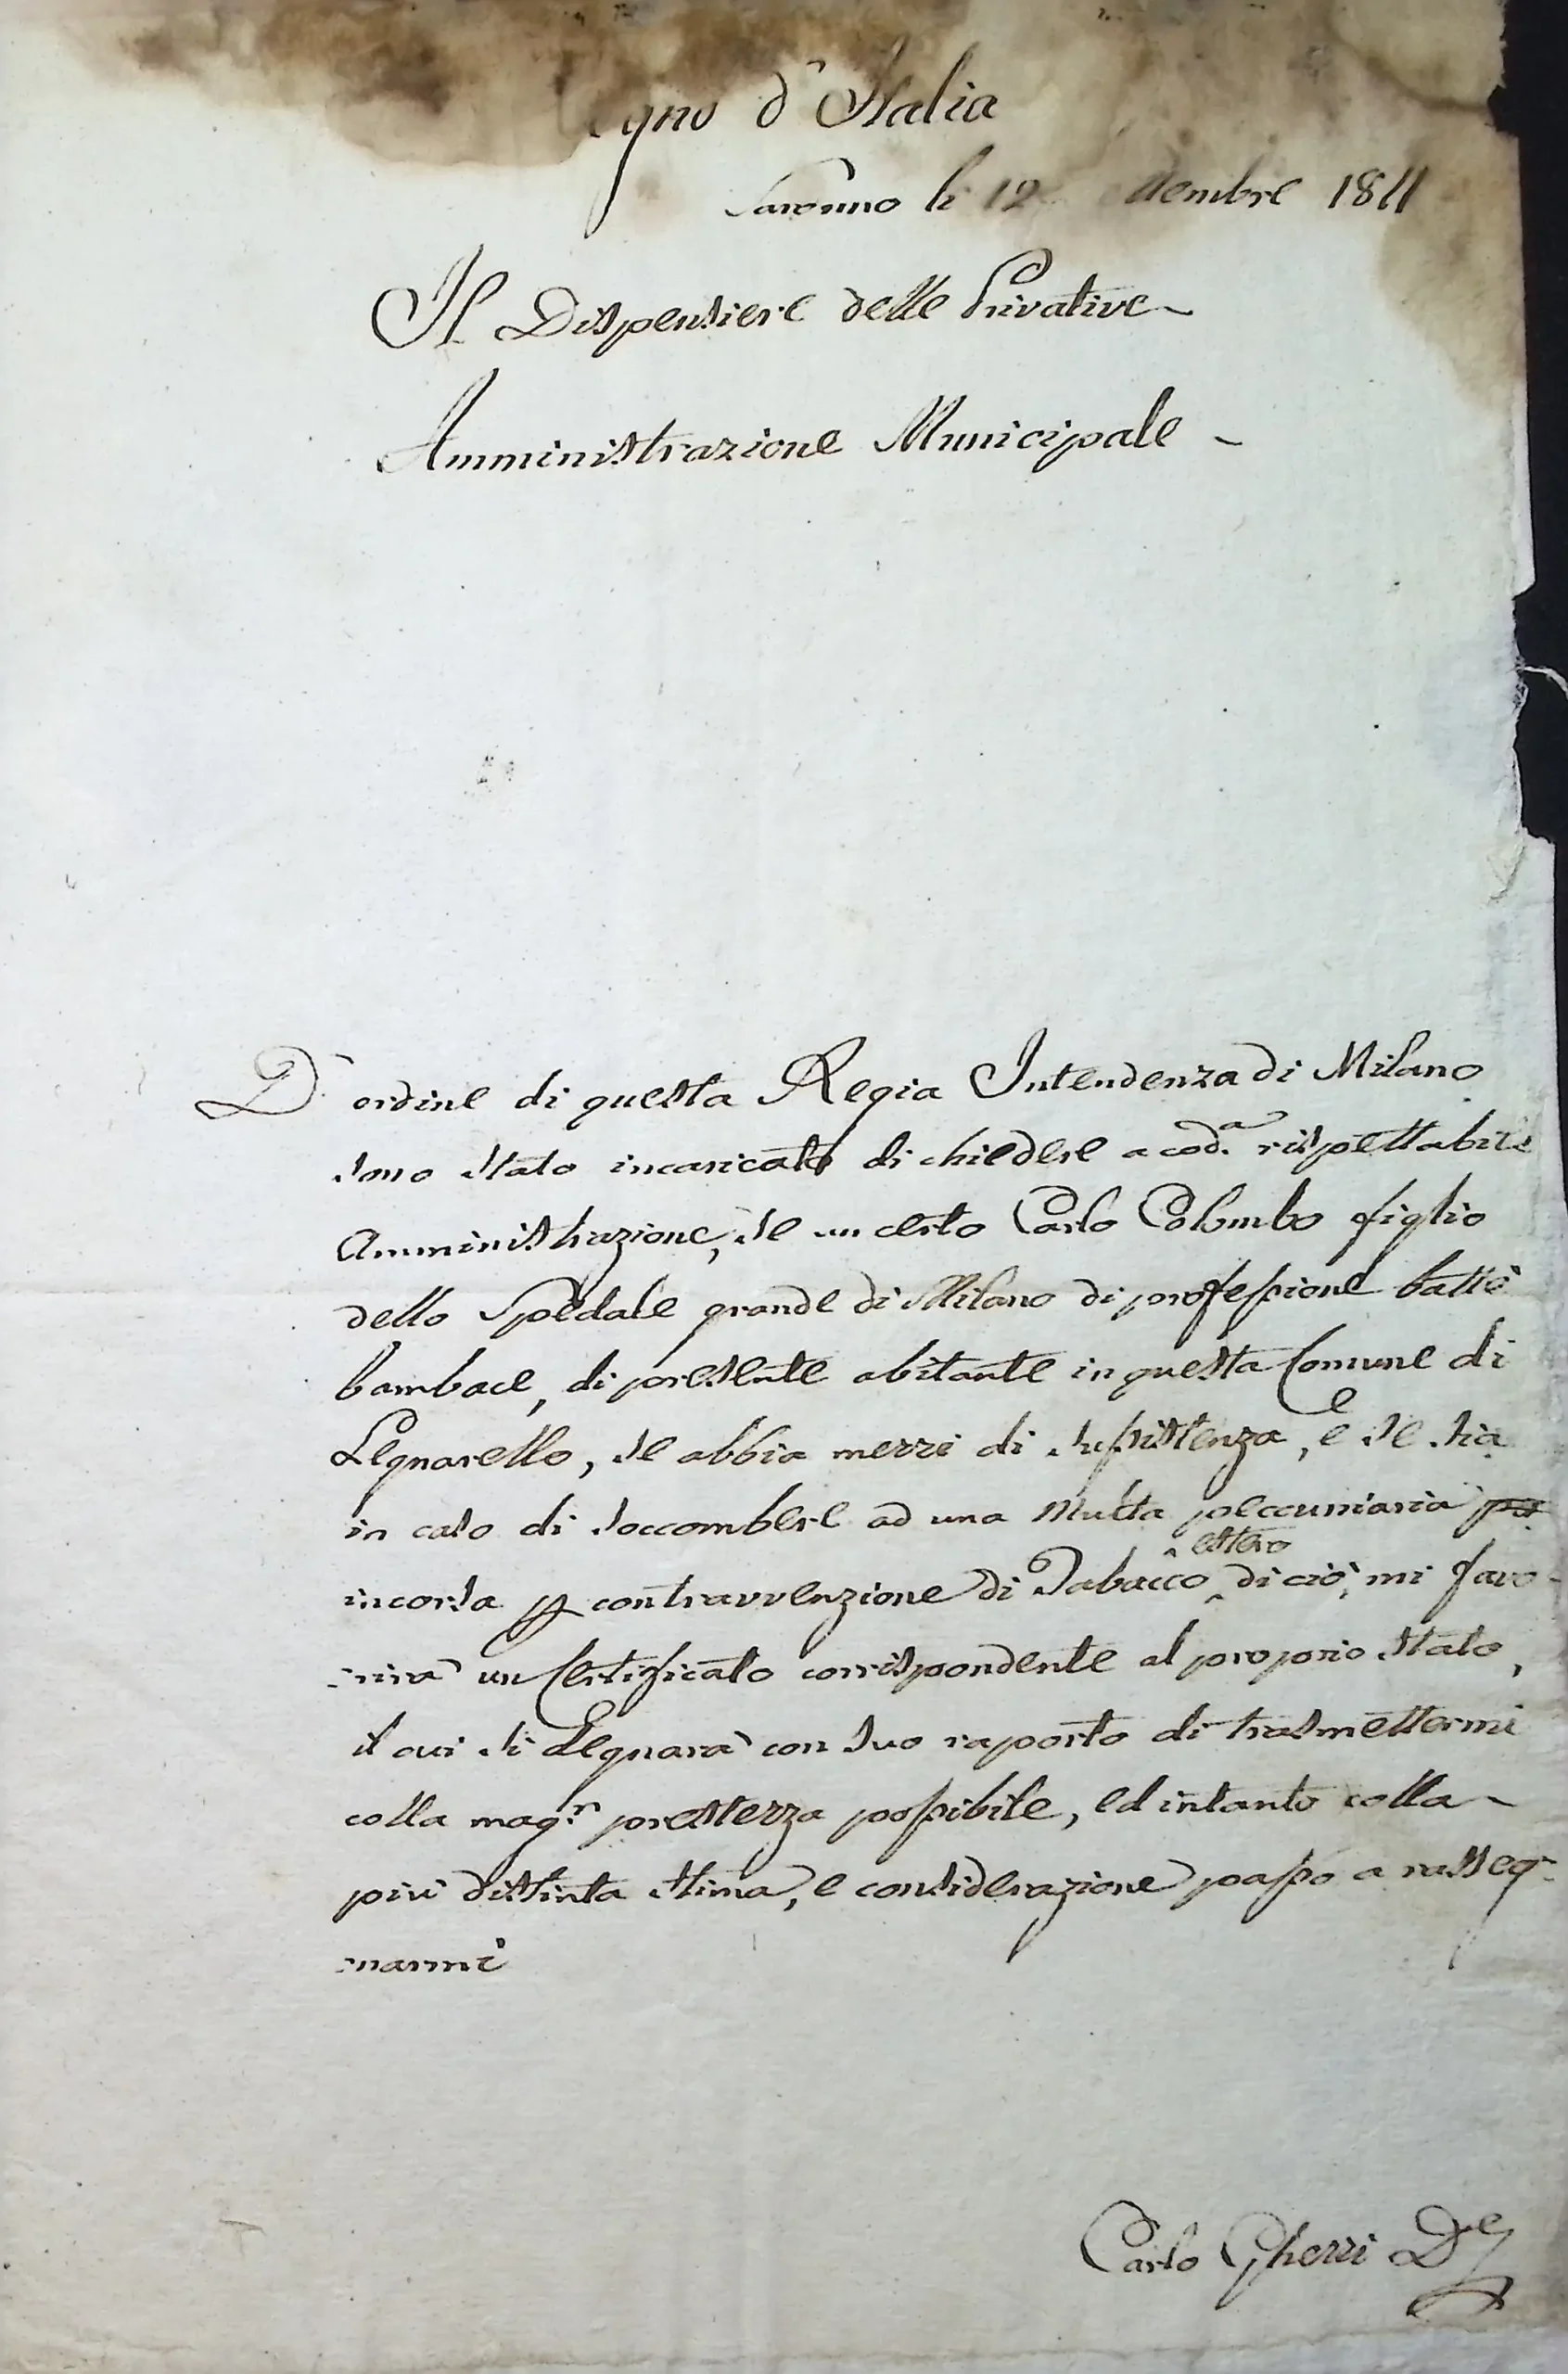 egno d'Italia
Saronno li 12 ttembre 1811
Il Dispensiere delle Privative
Amministrazione Municipale
D'ordine di questa Regia Intendenza di Milano
sono stato incaricato di chiedere a cod.a rispettabile
Amministrazione, se un certo Carlo Colombo figlio
dello Spedale grande di Milano di professione batti
bambace, di presente abitante in questa Comune di
Legnarello, se abbia mezzi di sussistenza, e se sia
in caso di soccombere ad una Multa peccuniaria
incorsa p contravvenzione di Tabacco estero, di ciò, mi favo-
-rirà un Certificato corrispondente al proprio Stato,
il cui si degnarà con suo raporto di trasmettermi
colla mag.r prestezza possibile, ed intanto colla
più distinta stima, e considerazione passo a rasseg-
-narmi
Carlo Ghezzi De